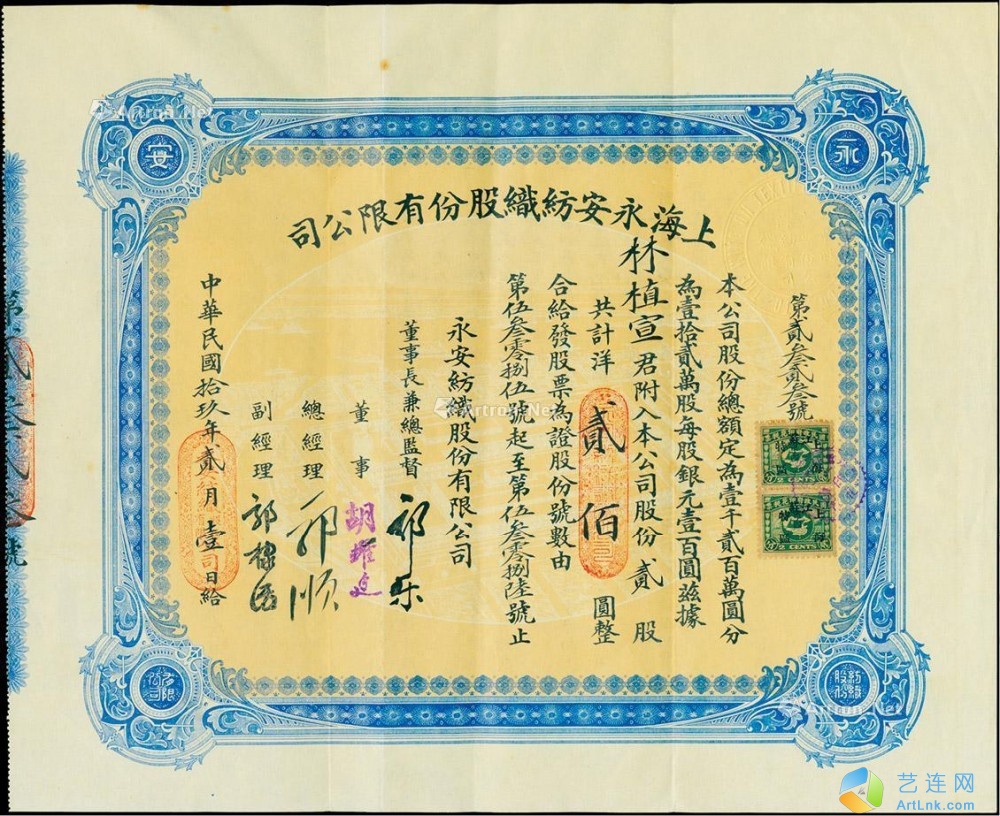 上海永安紡織股份有限公司
第貳叁貳叁號
本公司股份總額定為壹千貳百萬圓分
為壹拾貳萬股每股銀元壹百圓茲據
林植宣君附入本公司股份貳股
共計洋貳佰圓整
合給發股票為證股份號數由
第伍叁零捌伍號起至第伍叁零捌陸號止
永安紡織股份有限公司
董事長兼總監督 郭樂
董事 胡耀廷
總經理 郭順
副經理 郭棣活
中華民國拾玖年貳月壹日給
永
安
紡織股份
有限公司
2 CENTS
2 CENTS
Artron.Net
艺连网
ArtLnk.com